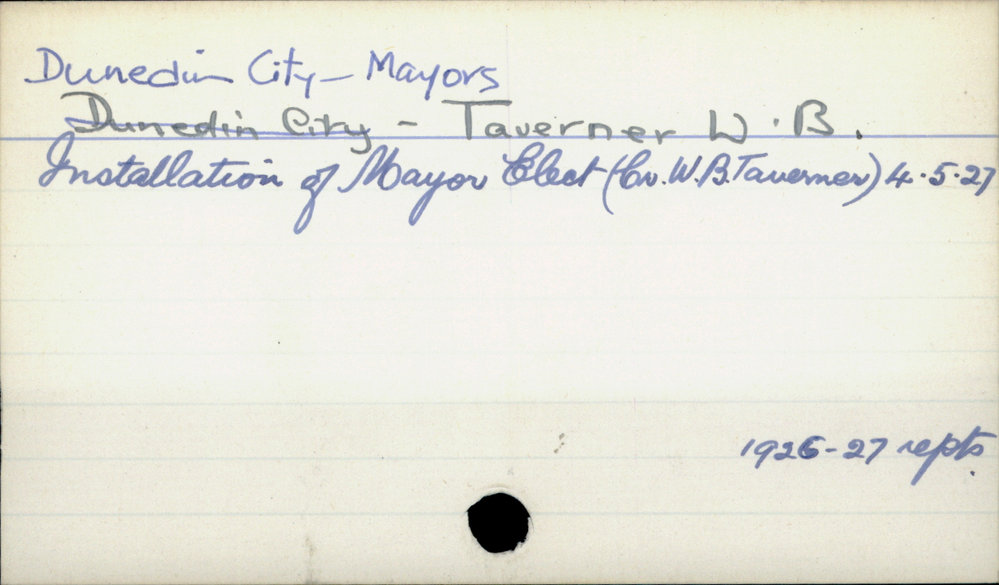 Dunedin City - Mayors
Dunedin City - Taverner W.B.
Installation of Mayor Elect (Cr. W.B. Taverner) 4.5.27
1926-27 repts.